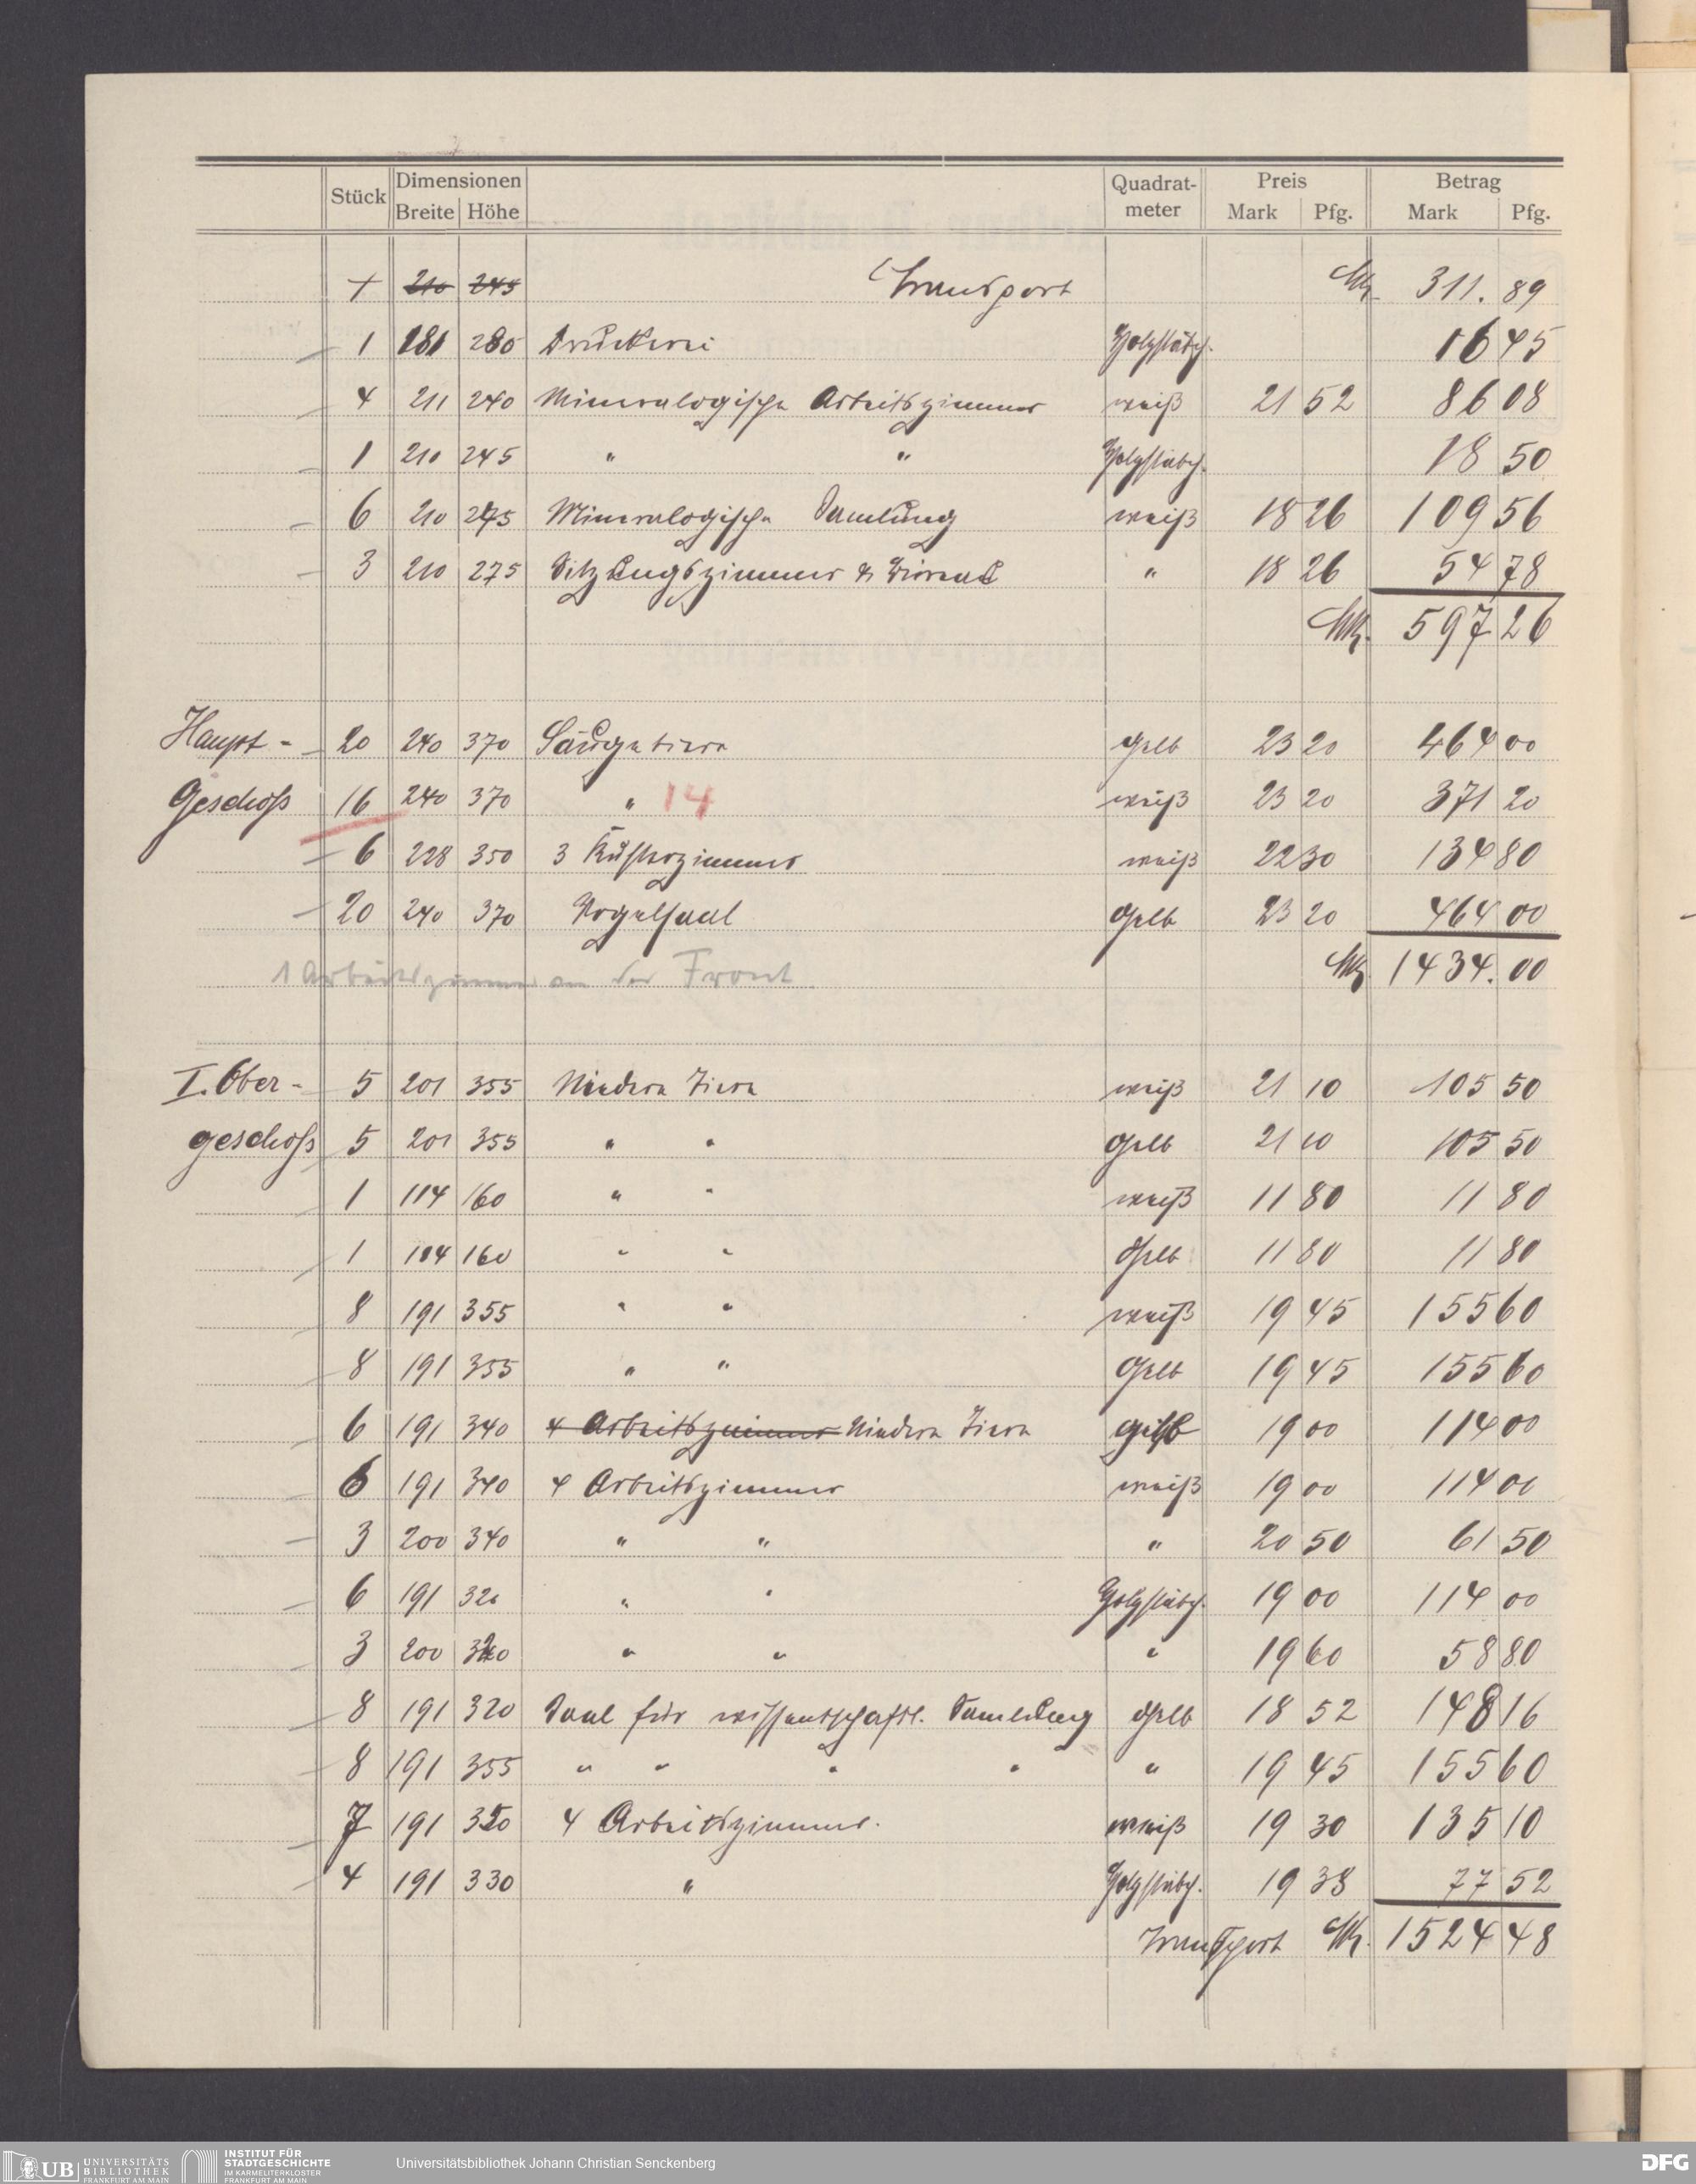 Stück Dimensionen Quadrat- Preis Betrag
Breite Höhe meter Mark Pfg. Mark Pfg.
1 210 245 Transport Mk. 311. 89
1 181 280 Druckerei Holzstäbch. 16 45
4 211 240 Mineralogische Arbeitszimmer weiß 21 52 86 08
1 210 245 " " Holzstäbch. 18 50
6 210 275 Mineralogische Samlung weiß 18 26 109 56
3 210 275 Sitzungszimmer & Bureau " 18 26 54 78
Mk. 597 26
Haupt- 20 240 370 Säugetiere gelb 23 20 464 00
Geschoß 16 240 370 " 14 weiß 23 20 371 20
6 228 350 3 Küsterzimmer weiß 22 30 134 80
20 240 370 Vogelsaal gelb 23 20 464 00
1 Arbeitszimmer an der Front Mk. 1434. 00
I. Ober- 5 201 355 Niedere Tiere weiß 21 10 105 50
geschoß 5 201 355 " " gelb 21 10 105 50
1 114 160 " " weiß 11 80 11 80
1 114 160 " " gelb 11 80 11 80
8 191 355 " " weiß 19 45 155 60
8 191 355 " " gelb 19 45 155 60
6 191 340 4 Arbeitszimmer Niedere Tiere gelb 19 00 114 00
6 191 340 4 Arbeitszimmer weiß 19 00 114 00
3 200 340 " " " 20 50 61 50
6 191 320 " " Holzstäbch. 19 00 114 00
3 200 320 " " " 19 60 58 80
8 191 320 Saal für wissentschaftl. Samlung gelb 18 52 148 16
8 191 355 " " " " " 19 45 155 60
7 191 350 4 Arbeitszimmer. weiß 19 30 135 10
4 191 330 " Holzstäbch. 19 38 77 52
Transport Mk. 1524 48
UB UNIVERSITÄTS BIBLIOTHEK FRANKFURT AM MAIN
INSTITUT FÜR STADTGESCHICHTE IM KARMELITERKLOSTER FRANKFURT AM MAIN
Universitätsbibliothek Johann Christian Senckenberg
DFG